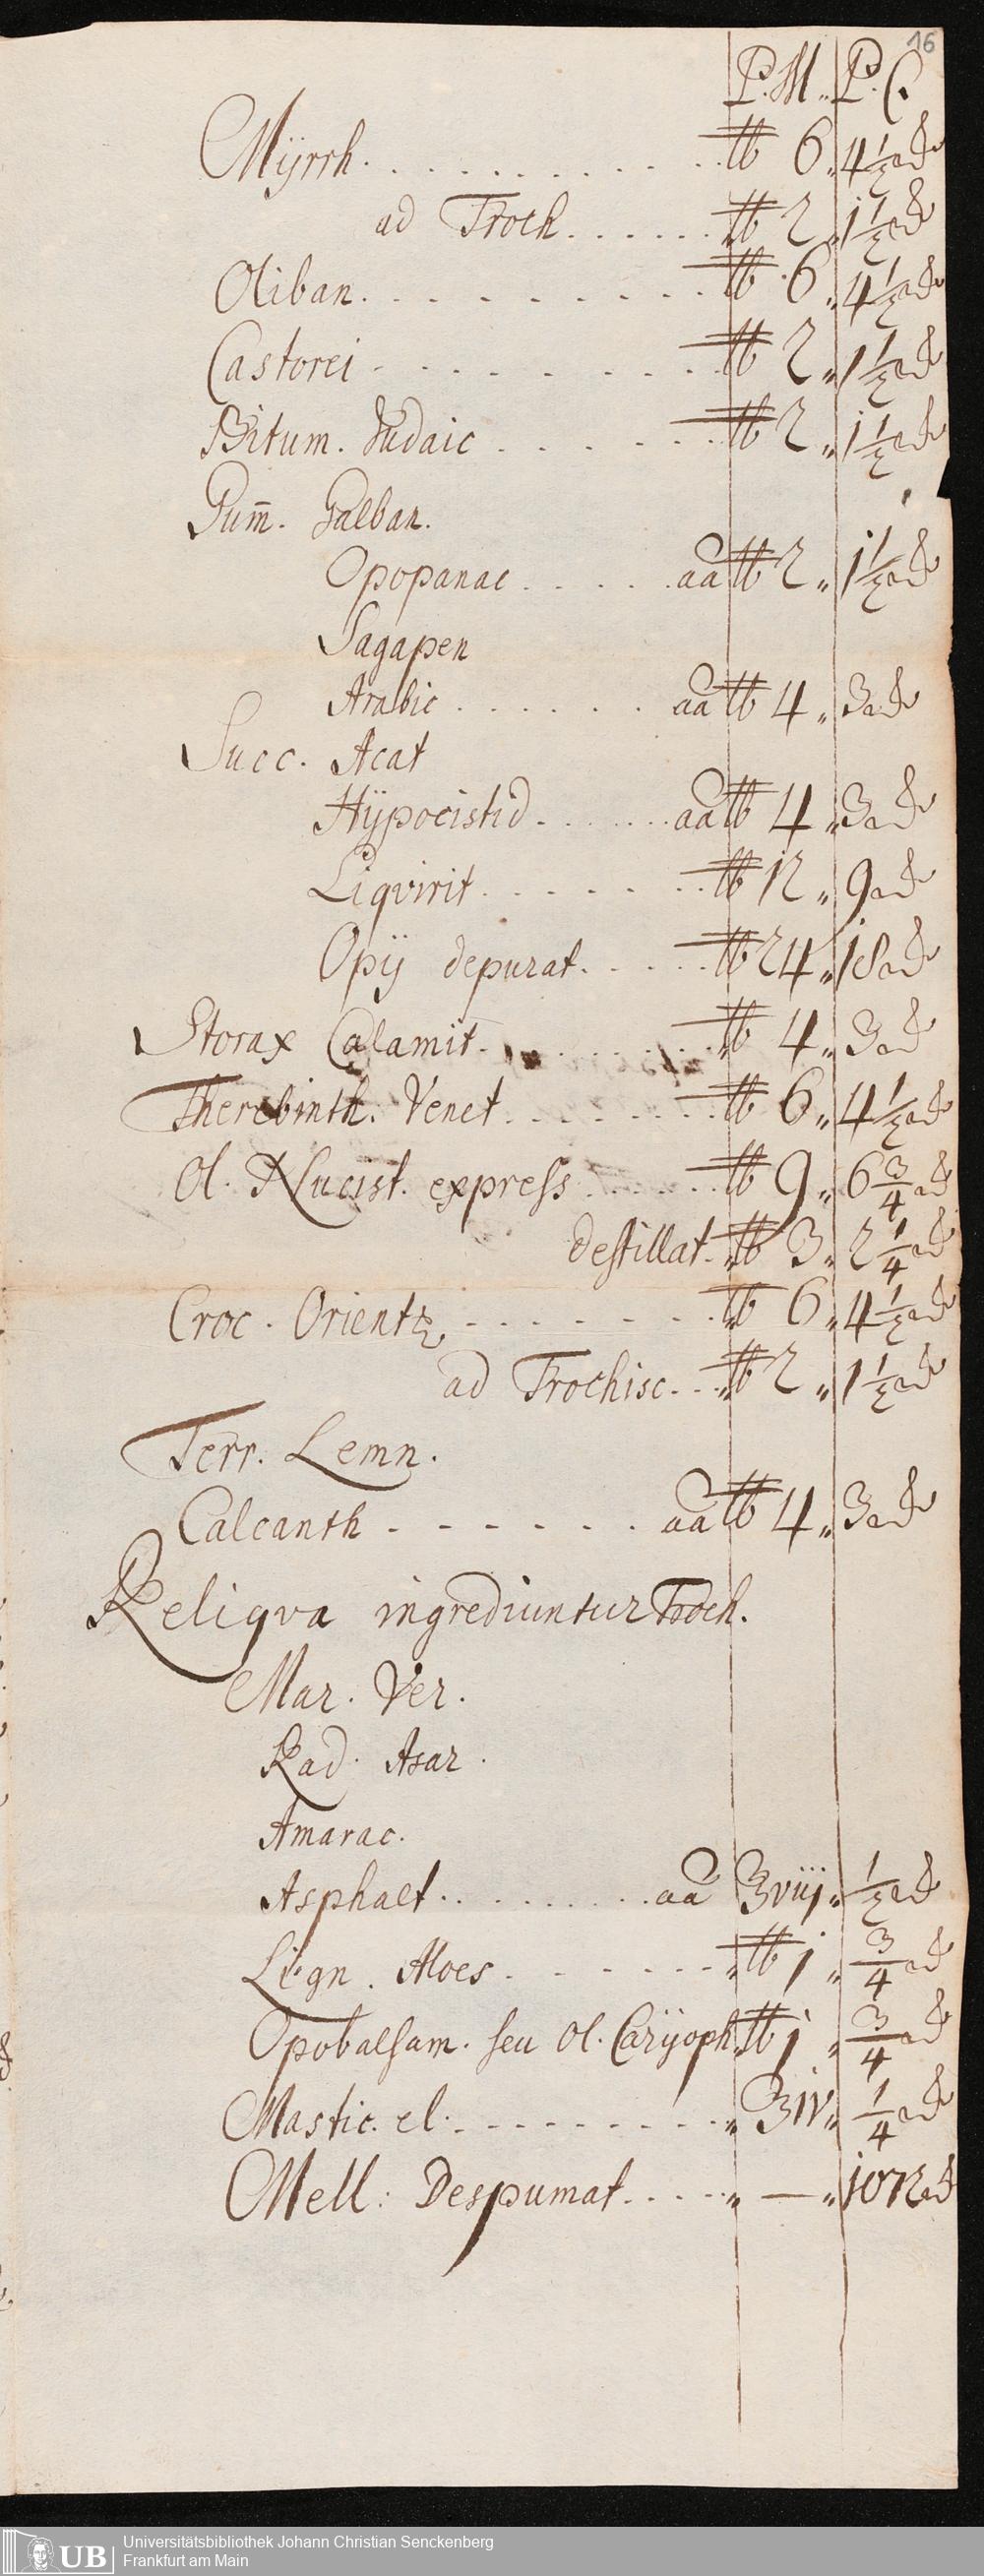 16
P. M. P. C.
Myrrh. . . . . . . . . . ℔ 6 „ 4 1/2 ℔
ad Troch. . . . . . ℔ 2 „ 1 1/2 ℔
Oliban. . . . . . . . . ℔ 6 „ 4 1/2 ℔
Castorei - . . . . . . . . ℔ 2 „ 1 1/2 ℔
Bitum. Judaic . . . . . . ℔ 2 „ 1 1/2 ℔
Gum̄. Galban.
Opopanac . . . . . aā ℔ 2 „ 1 1/2 ℔
Sagapen
Arabic . . . . . . aā ℔ 4 „ 3 ℔
Succ. Acat
Hÿpocistid . . . . . . aā ℔ 4 „ 3 ℔
Liqvirit . . . . . . . ℔ 12 „ 9 ℔
Opij depurat. . . . . . ℔ 24 „ 18 ℔
Storax Calamit. . . . . . . . ℔ 4 „ 3 ℔
Therebinth. Venet. . . . . . . ℔ 6 „ 4 1/2 ℔
Ol. Nucist. expreſs . . . . . . ℔ 9 „ 6 3/4 ℔
deſtillat. „ ℔ 3 „ 2 1/4 ℔
Croc. Oriental - . . . . . . . ℔ 6 „ 4 1/2 ℔
ad Trochisc. . . „ ℔ 2 „ 1 1/2 ℔
Terr. Lemn.
Calcanth - - - - - - . aā ℔ 4 „ 3 ℔
Reliqva ingrediuntur Troch.
Mar. Ver.
Rad. Asar.
Amarac.
Asphalt . . . . . . . . . aā ℥viij „ 1/2 ℔
Lign. Aloes . - - - - - „ ℔ j „ 3/4 ℔
Opobalſam. ſeu Ol. Carÿoph „ ℔ j „ 3/4 ℔
Mastic. el. - - - - - - - „ ℥iv „ 1/4 ℔
Mell: Despumat. . . . . „ — „ 1072 ℔
UB
Universitätsbibliothek Johann Christian Senckenberg
Frankfurt am Main